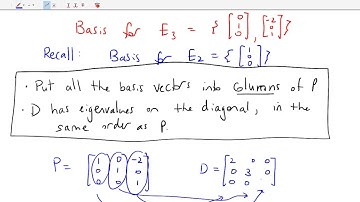 Basis for E₃ = { [0 1 1], [-2 0 1] }
Recall: Basis for E₂ = { [1 0 0] }
· Put all the basis vectors into columns of P
· D has eigenvalues on the diagonal, in the
same order as P.
P = [1 0 -2
0 1 0
0 1 1]
D = [2 0 0
0 3 0
0 0